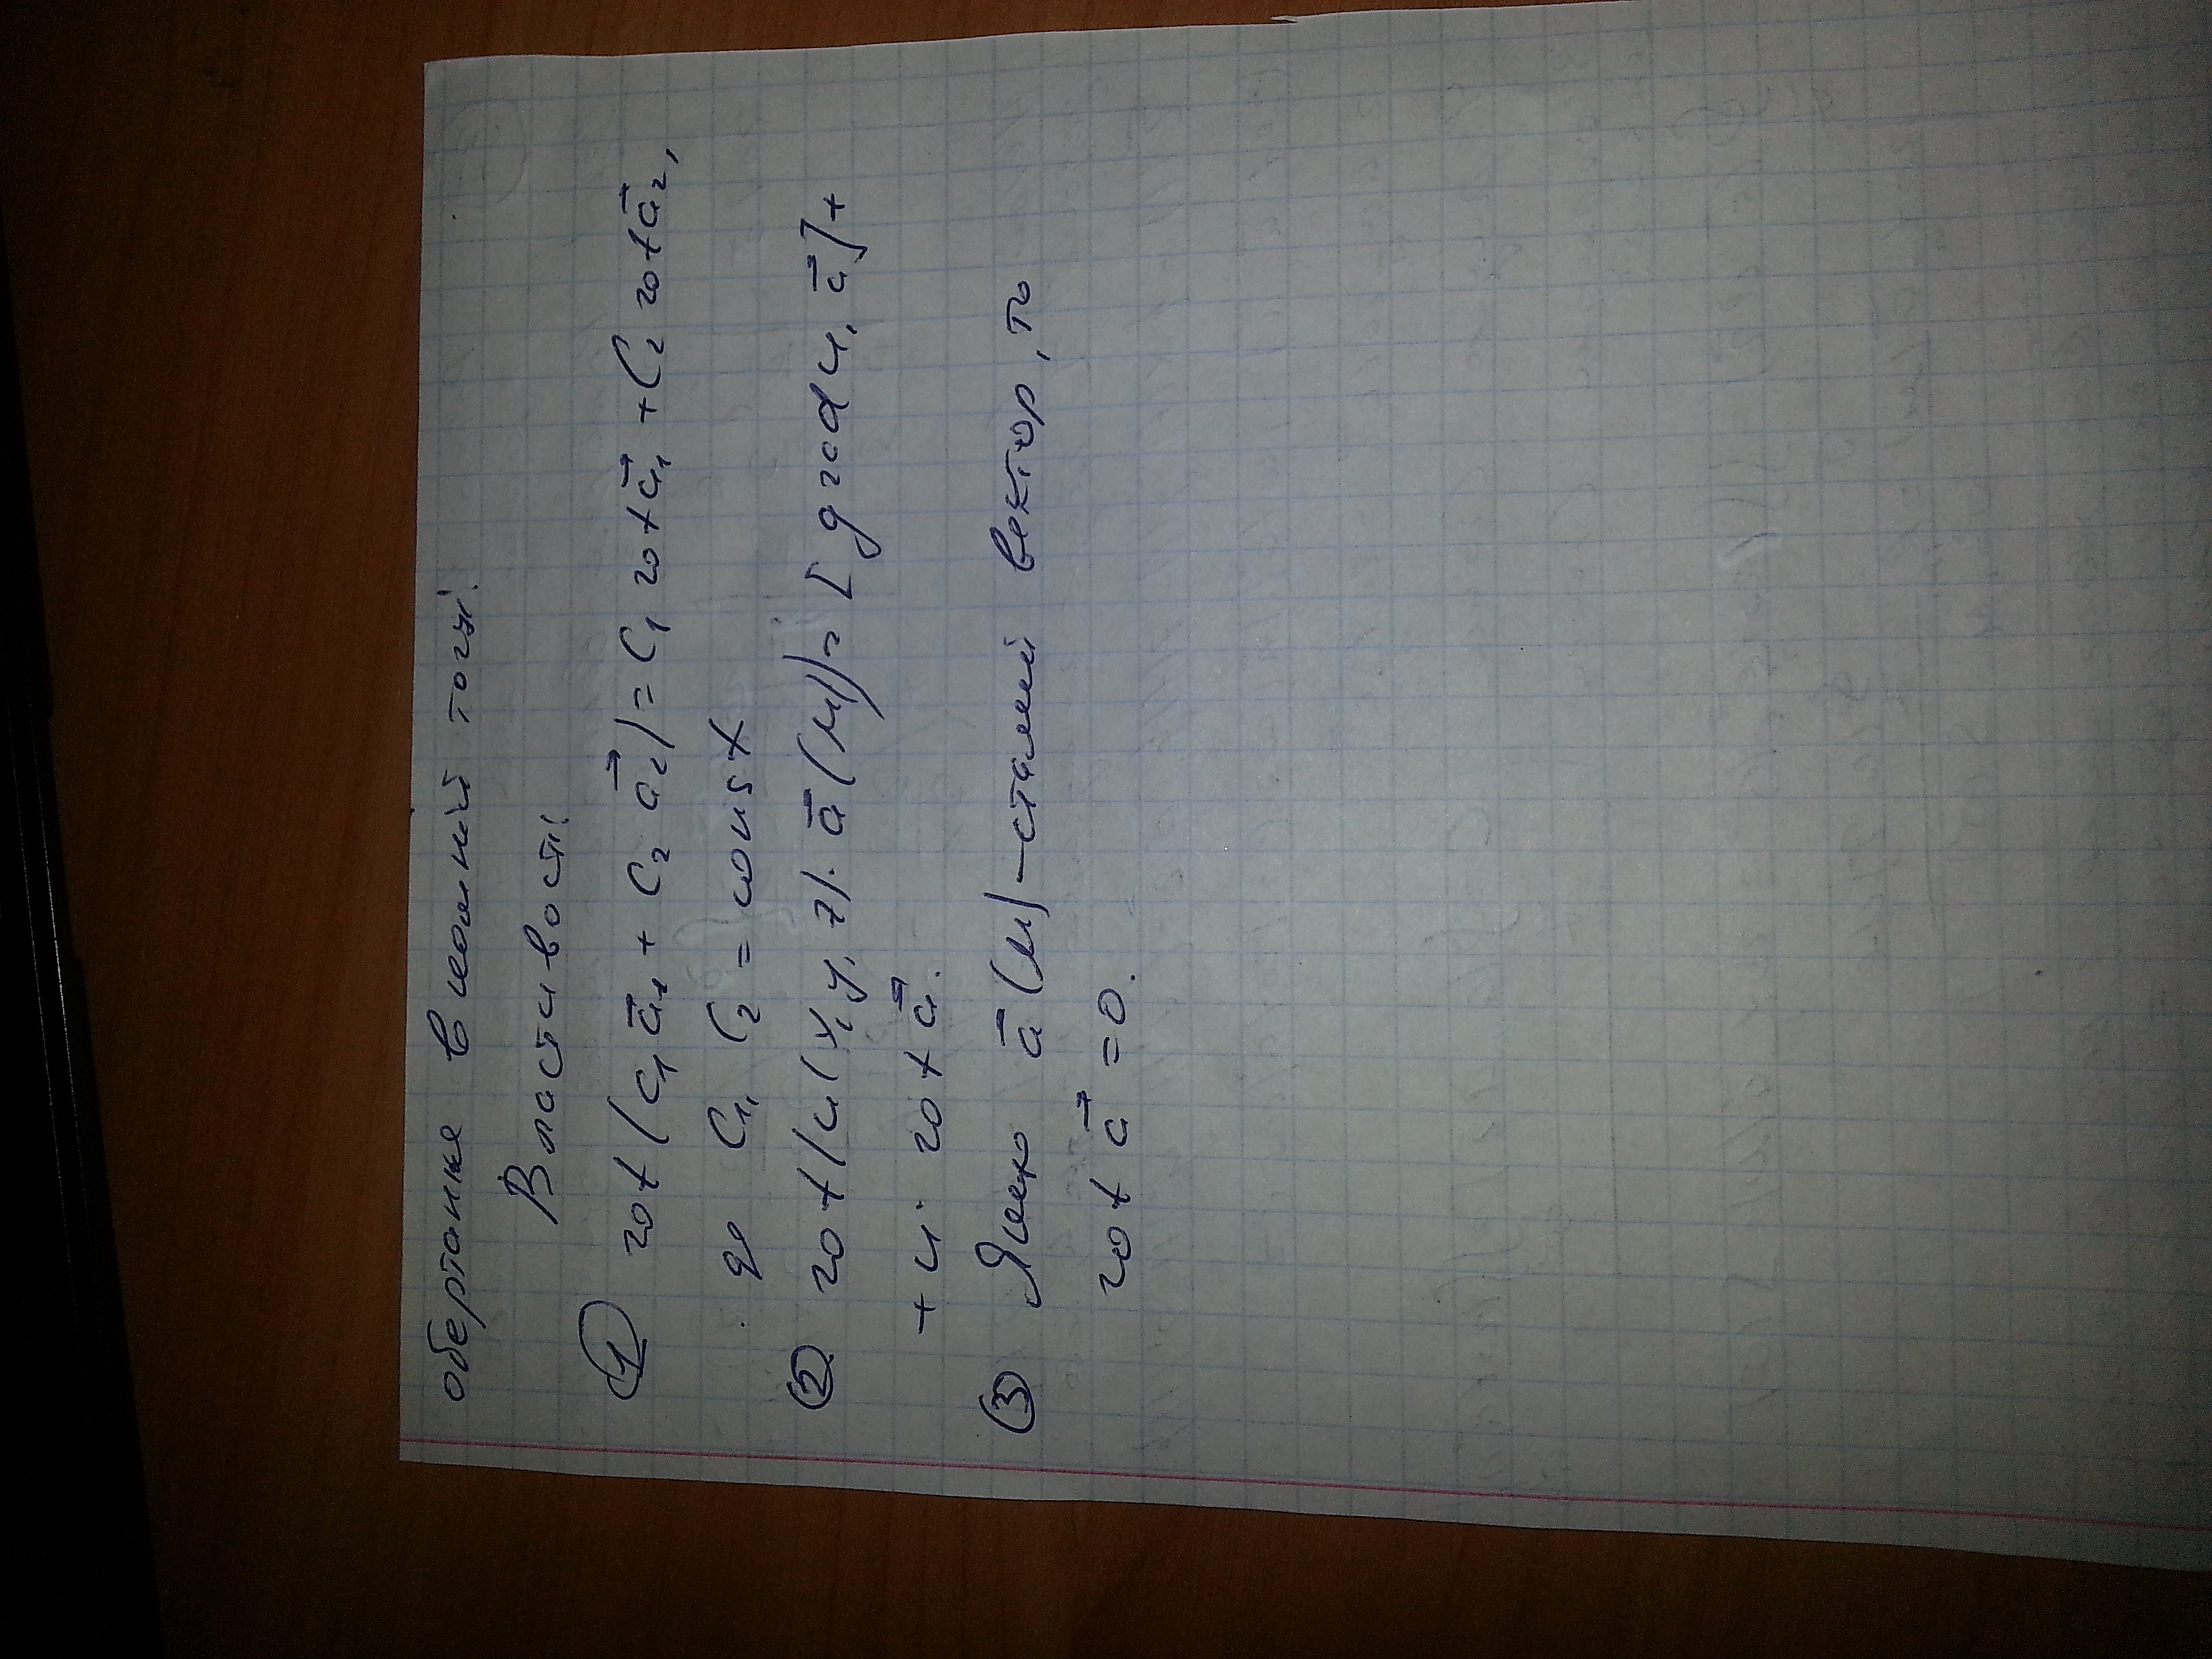 обертання в кожній точці.
Властивості
① rot (c₁ a⃗₁ + c₂ a⃗₂) = c₁ rot a⃗₁ + c₂ rot a⃗₂,
де c₁, c₂ = const
② rot (u(x, y, z) · a⃗ (M)) = [grad u, a⃗] +
+ u · rot a⃗.
③ Якщо a⃗ (M) – сталий вектор, то
rot a⃗ = 0.